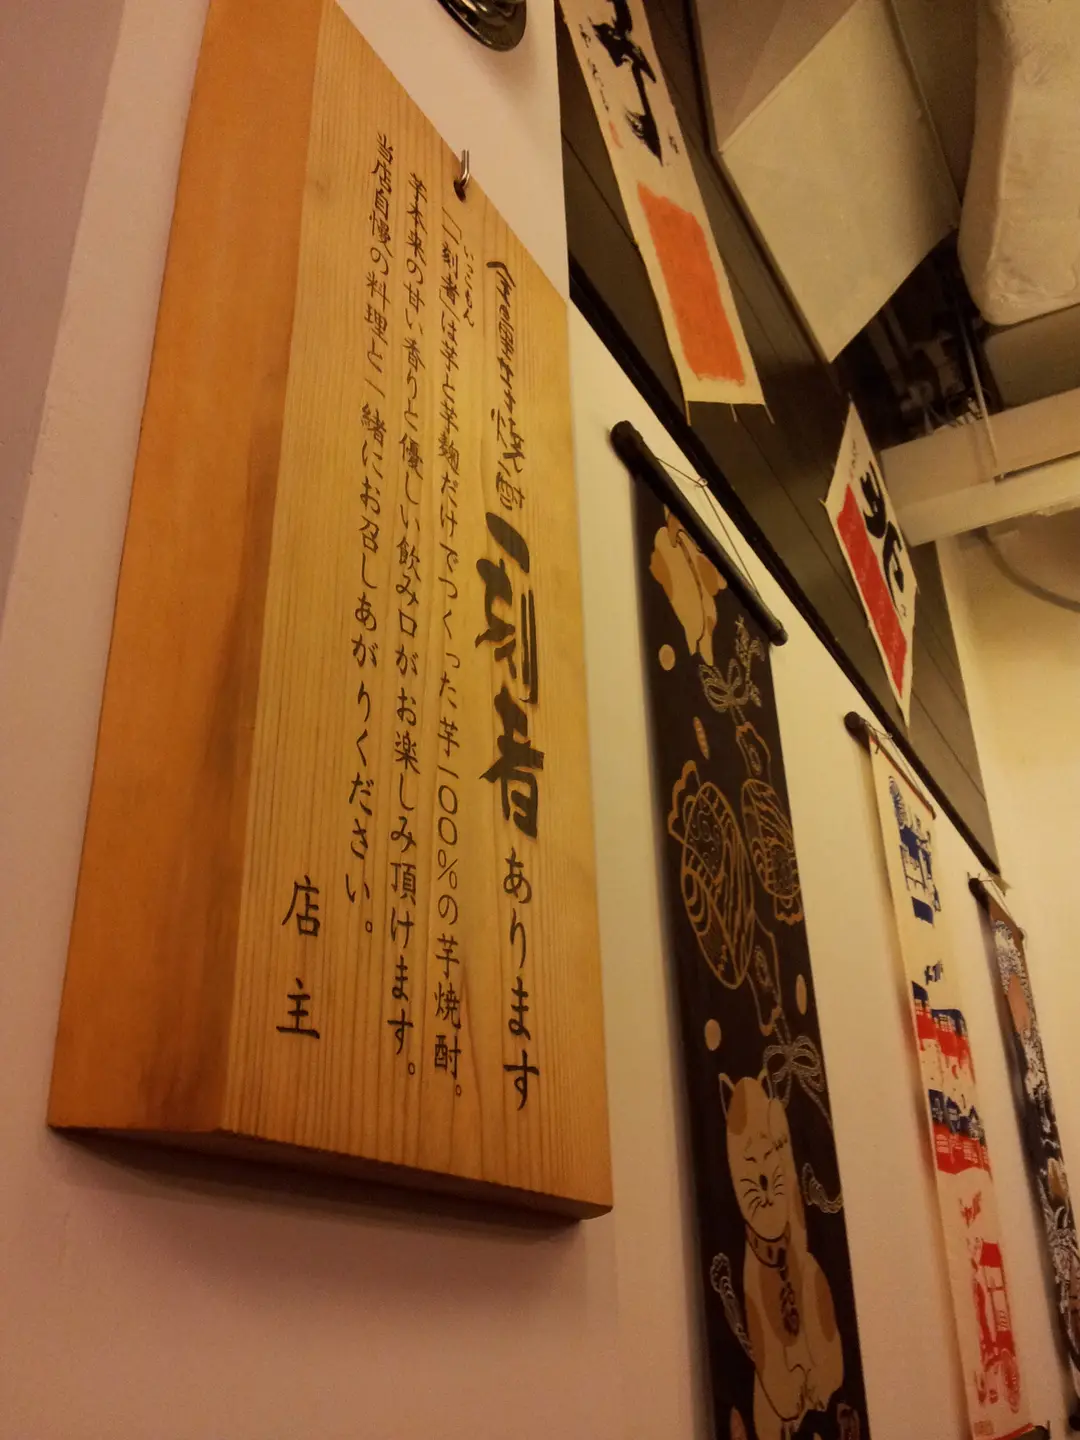 全量芋焼酎 一刻者 あります
いっこもん
「一刻者」は芋と芋麹だけでつくった芋一〇〇%の芋焼酎。
芋本来の甘い香りと優しい飲み口がお楽しみ頂けます。
当店自慢の料理と一緒にお召しあがりください。
店主